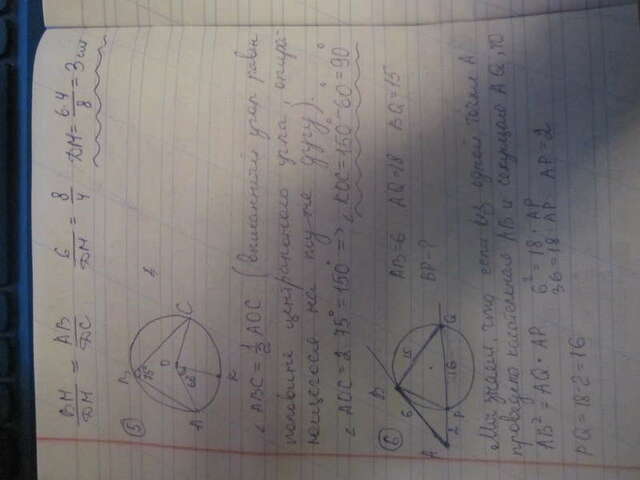 BH/DH = AB/DC 6/DH = 8/4 DH = 6·4/8 = 3 см
5
B
75°
O
60°
A
C
K
∠ABC = 1/2 AOC (вписанный угол равен
половине центрального угла, опира-
ющегося на ту же дугу).
∠AOC = 2·75° = 150° => ∠KOC = 150° - 60° = 90°
6
B
6
15
A
2
P
16
Q
AB=6 AQ=18 BQ=15
BP-?
Мы знаем, что если из одной точки A
проведена касательная AB и секущая AQ, то
AB² = AQ · AP 6² = 18 · AP
36 = 18 · AP AP = 2
PQ = 18-2 = 16